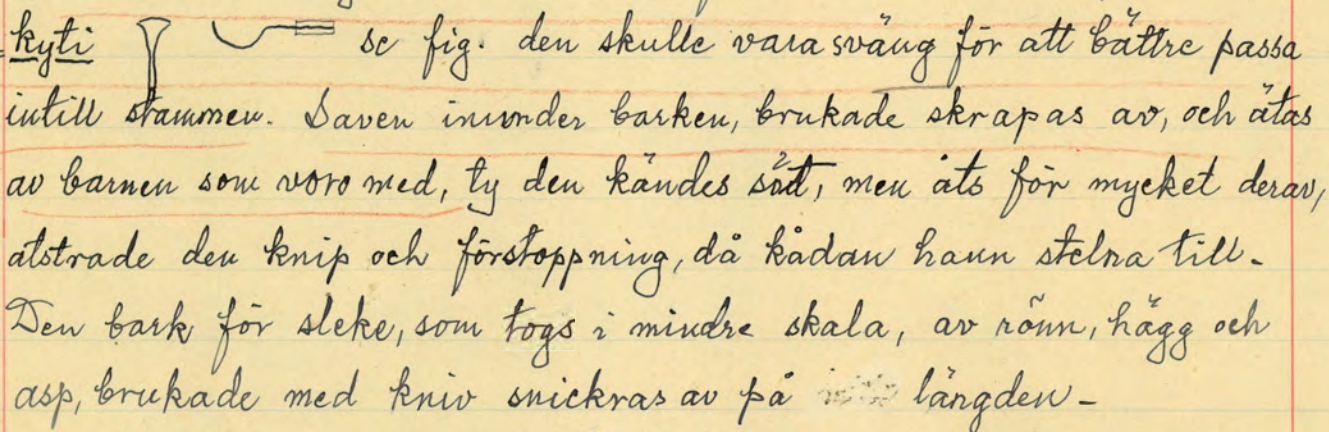 kyti se fig. den skulle vara sväng för att bättre passa
intill stammen. Saven inunder barken, brukade skrapas av, och ätas
av barnen som voro med, ty den kändes söt, men åts för mycket derav,
alstrade den knip och förstoppning, då kådan hann stelna till.
Den bark för sleke, som togs i mindre skala, av rönn, hägg och
asp, brukade med kniv snickras av på längden -